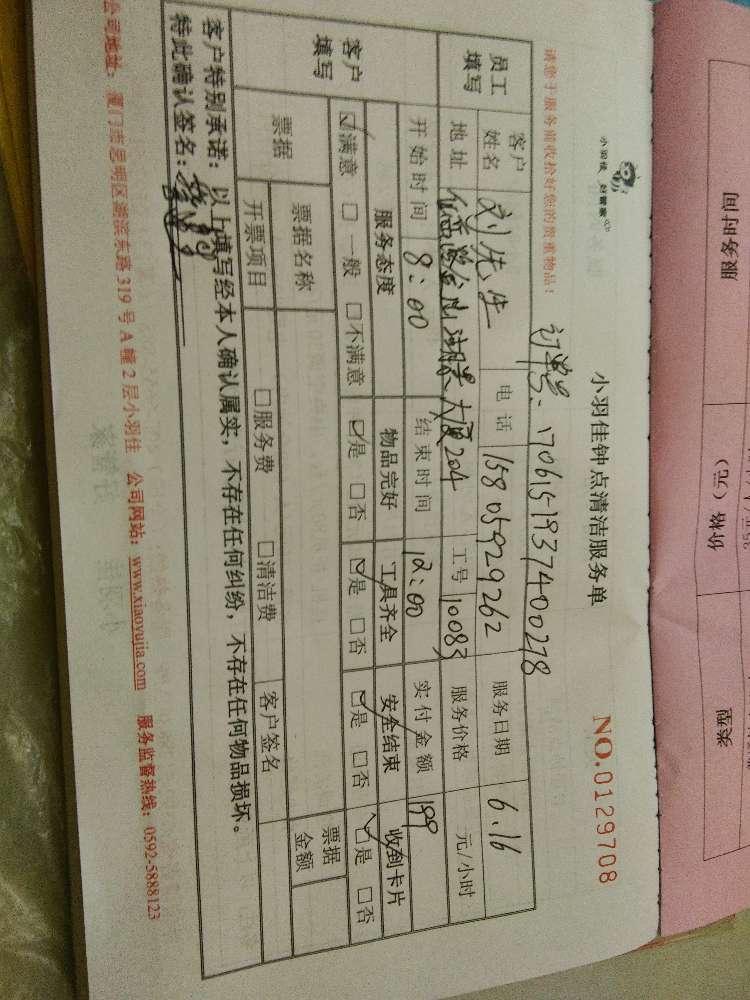 小羽佳钟点清洁服务单
NO.0129708
请您于服务前收拾好您的贵重物品！
订单号：1706151937400278
员工填写 客户姓名 刘先生 电话 15805929262 服务日期 6.16
地址 湖景大厦204 工号 10083 服务价格 元/小时
客户填写 开始时间 8：00 结束时间 12：00 实付金额 199
服务态度 物品完好 工具齐全 安全结束 收到卡片
☑满意 □一般 □不满意 ☑是 □否 ☑是 □否 ☑是 □否 ☑是 □否
票据 票据名称 票据金额
开票项目 □服务费 □清洁费 客户签名
客户特别承诺：以上填写经本人确认属实，不存在任何纠纷，不存在任何物品损坏。
特此确认签名：
公司地址：厦门市思明区湖滨东路319号A幢2层小羽佳 公司网站：www.xiaoyujia.com 服务监督热线：0592-5888123
服务时间 价格（元） 类型